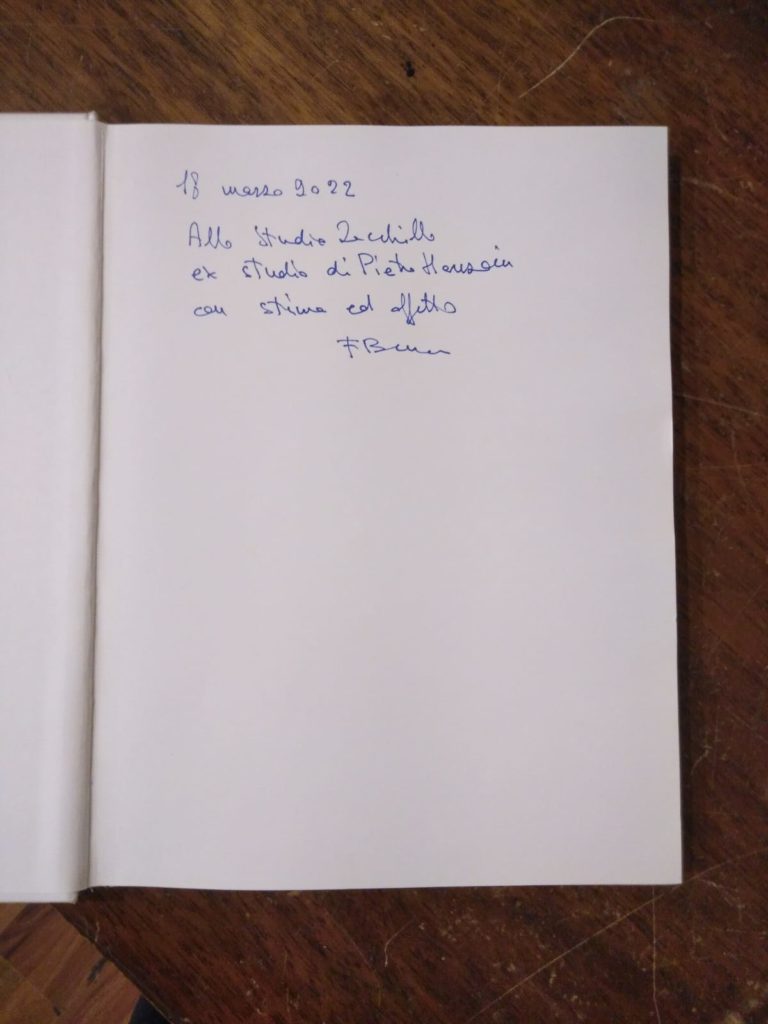 18 marzo 2022
Allo Studio Zecchillo
ex studio di Pietro
con stima ed affetto